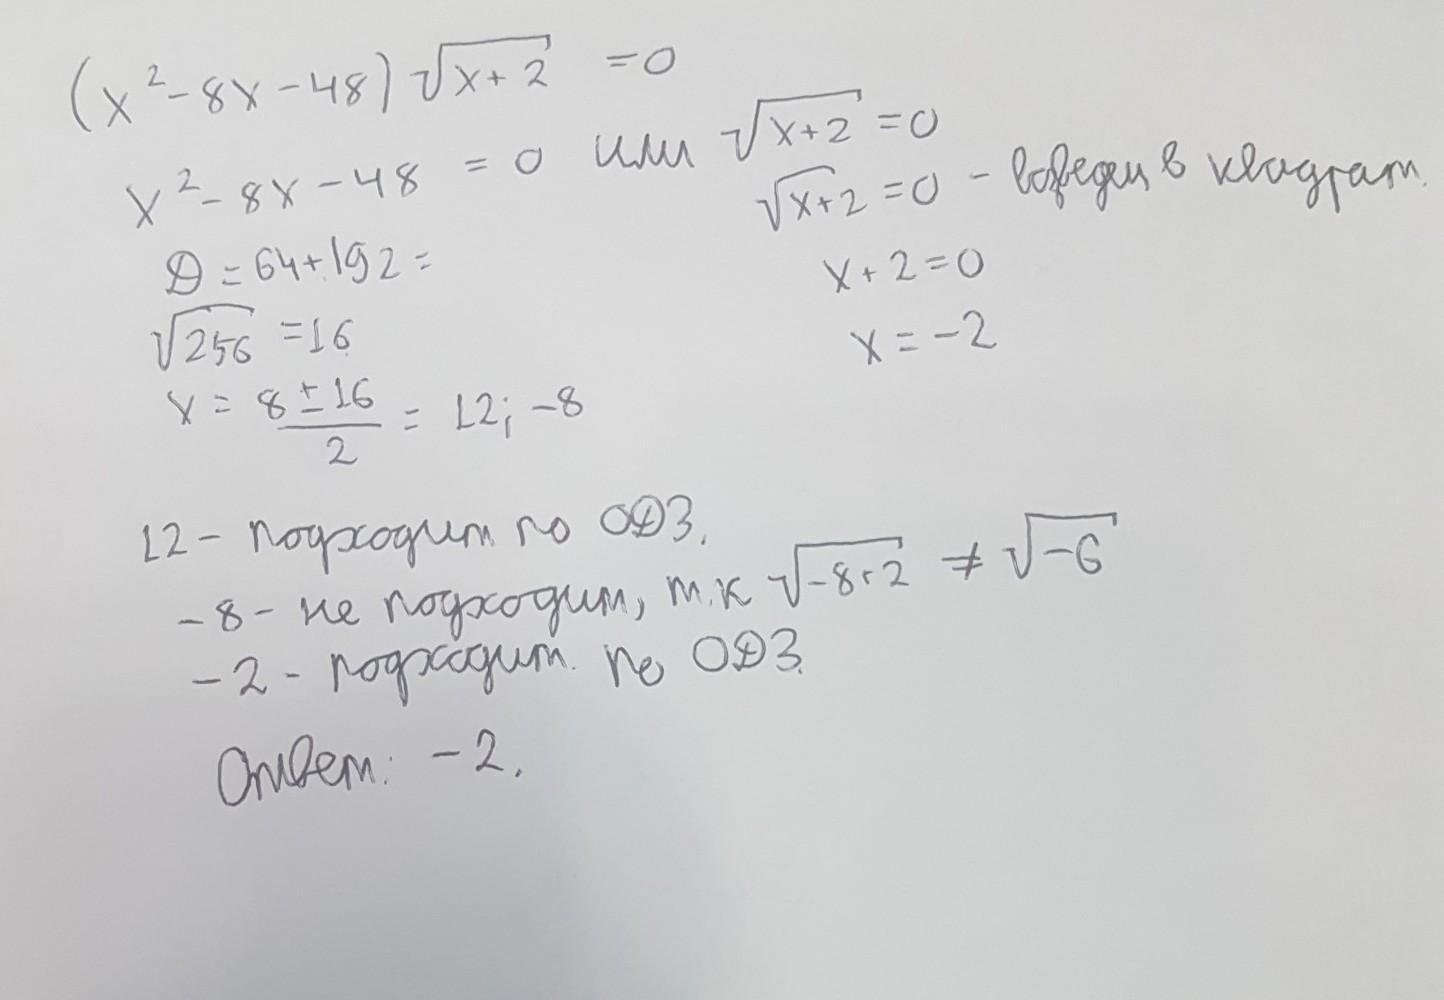 (x² - 8x - 48) √(x+2) = 0
x² - 8x - 48 = 0 или √(x+2) = 0
√(x+2) = 0 - возведем в квадрат.
D = 64 + 192 =
x + 2 = 0
√256 = 16
x = -2
x = (8 ± 16)/2 = 12; -8
12 - подходит по ОДЗ.
-8 - не подходит, т.к √(-8+2) ≠ √(-6)
-2 - подходит. по ОДЗ.
Ответ: -2.